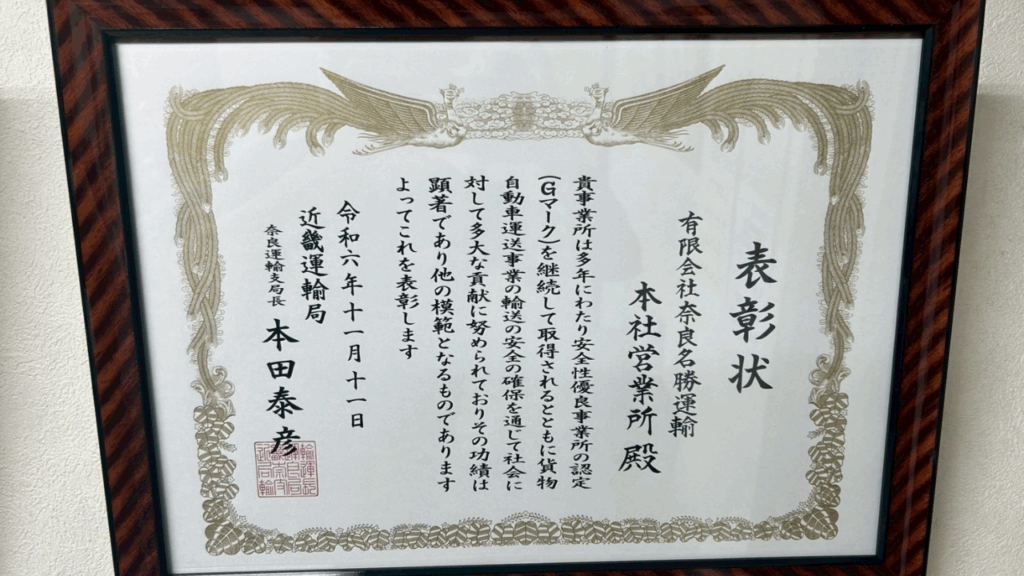 表彰状
有限会社奈良名勝運輸
本社営業所 殿
貴事業所は多年にわたり安全性優良事業所の認定
(Gマーク)を継続して取得されるとともに貨物
自動車運送事業の輸送の安全の確保を通して社会に
対して多大な貢献に努められておりその功績は
顕著であり他の模範となるものであります
よってこれを表彰します
令和六年十一月十一日
近畿運輸局
奈良運輸支局長 本田泰彦